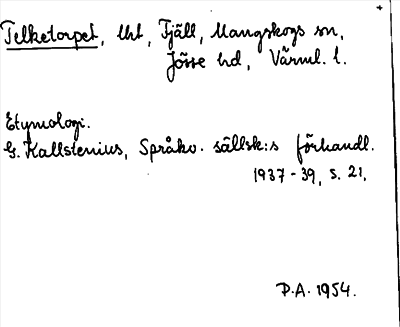 Telketorpet, lht, Fjäll, Mangskogs sn,
Jösse hd, Värml. l.
Etymologi.
G. Kallstenius, Språkv. sällsk:s förhandl.
1937-39, s. 21,
P.A. 1954.